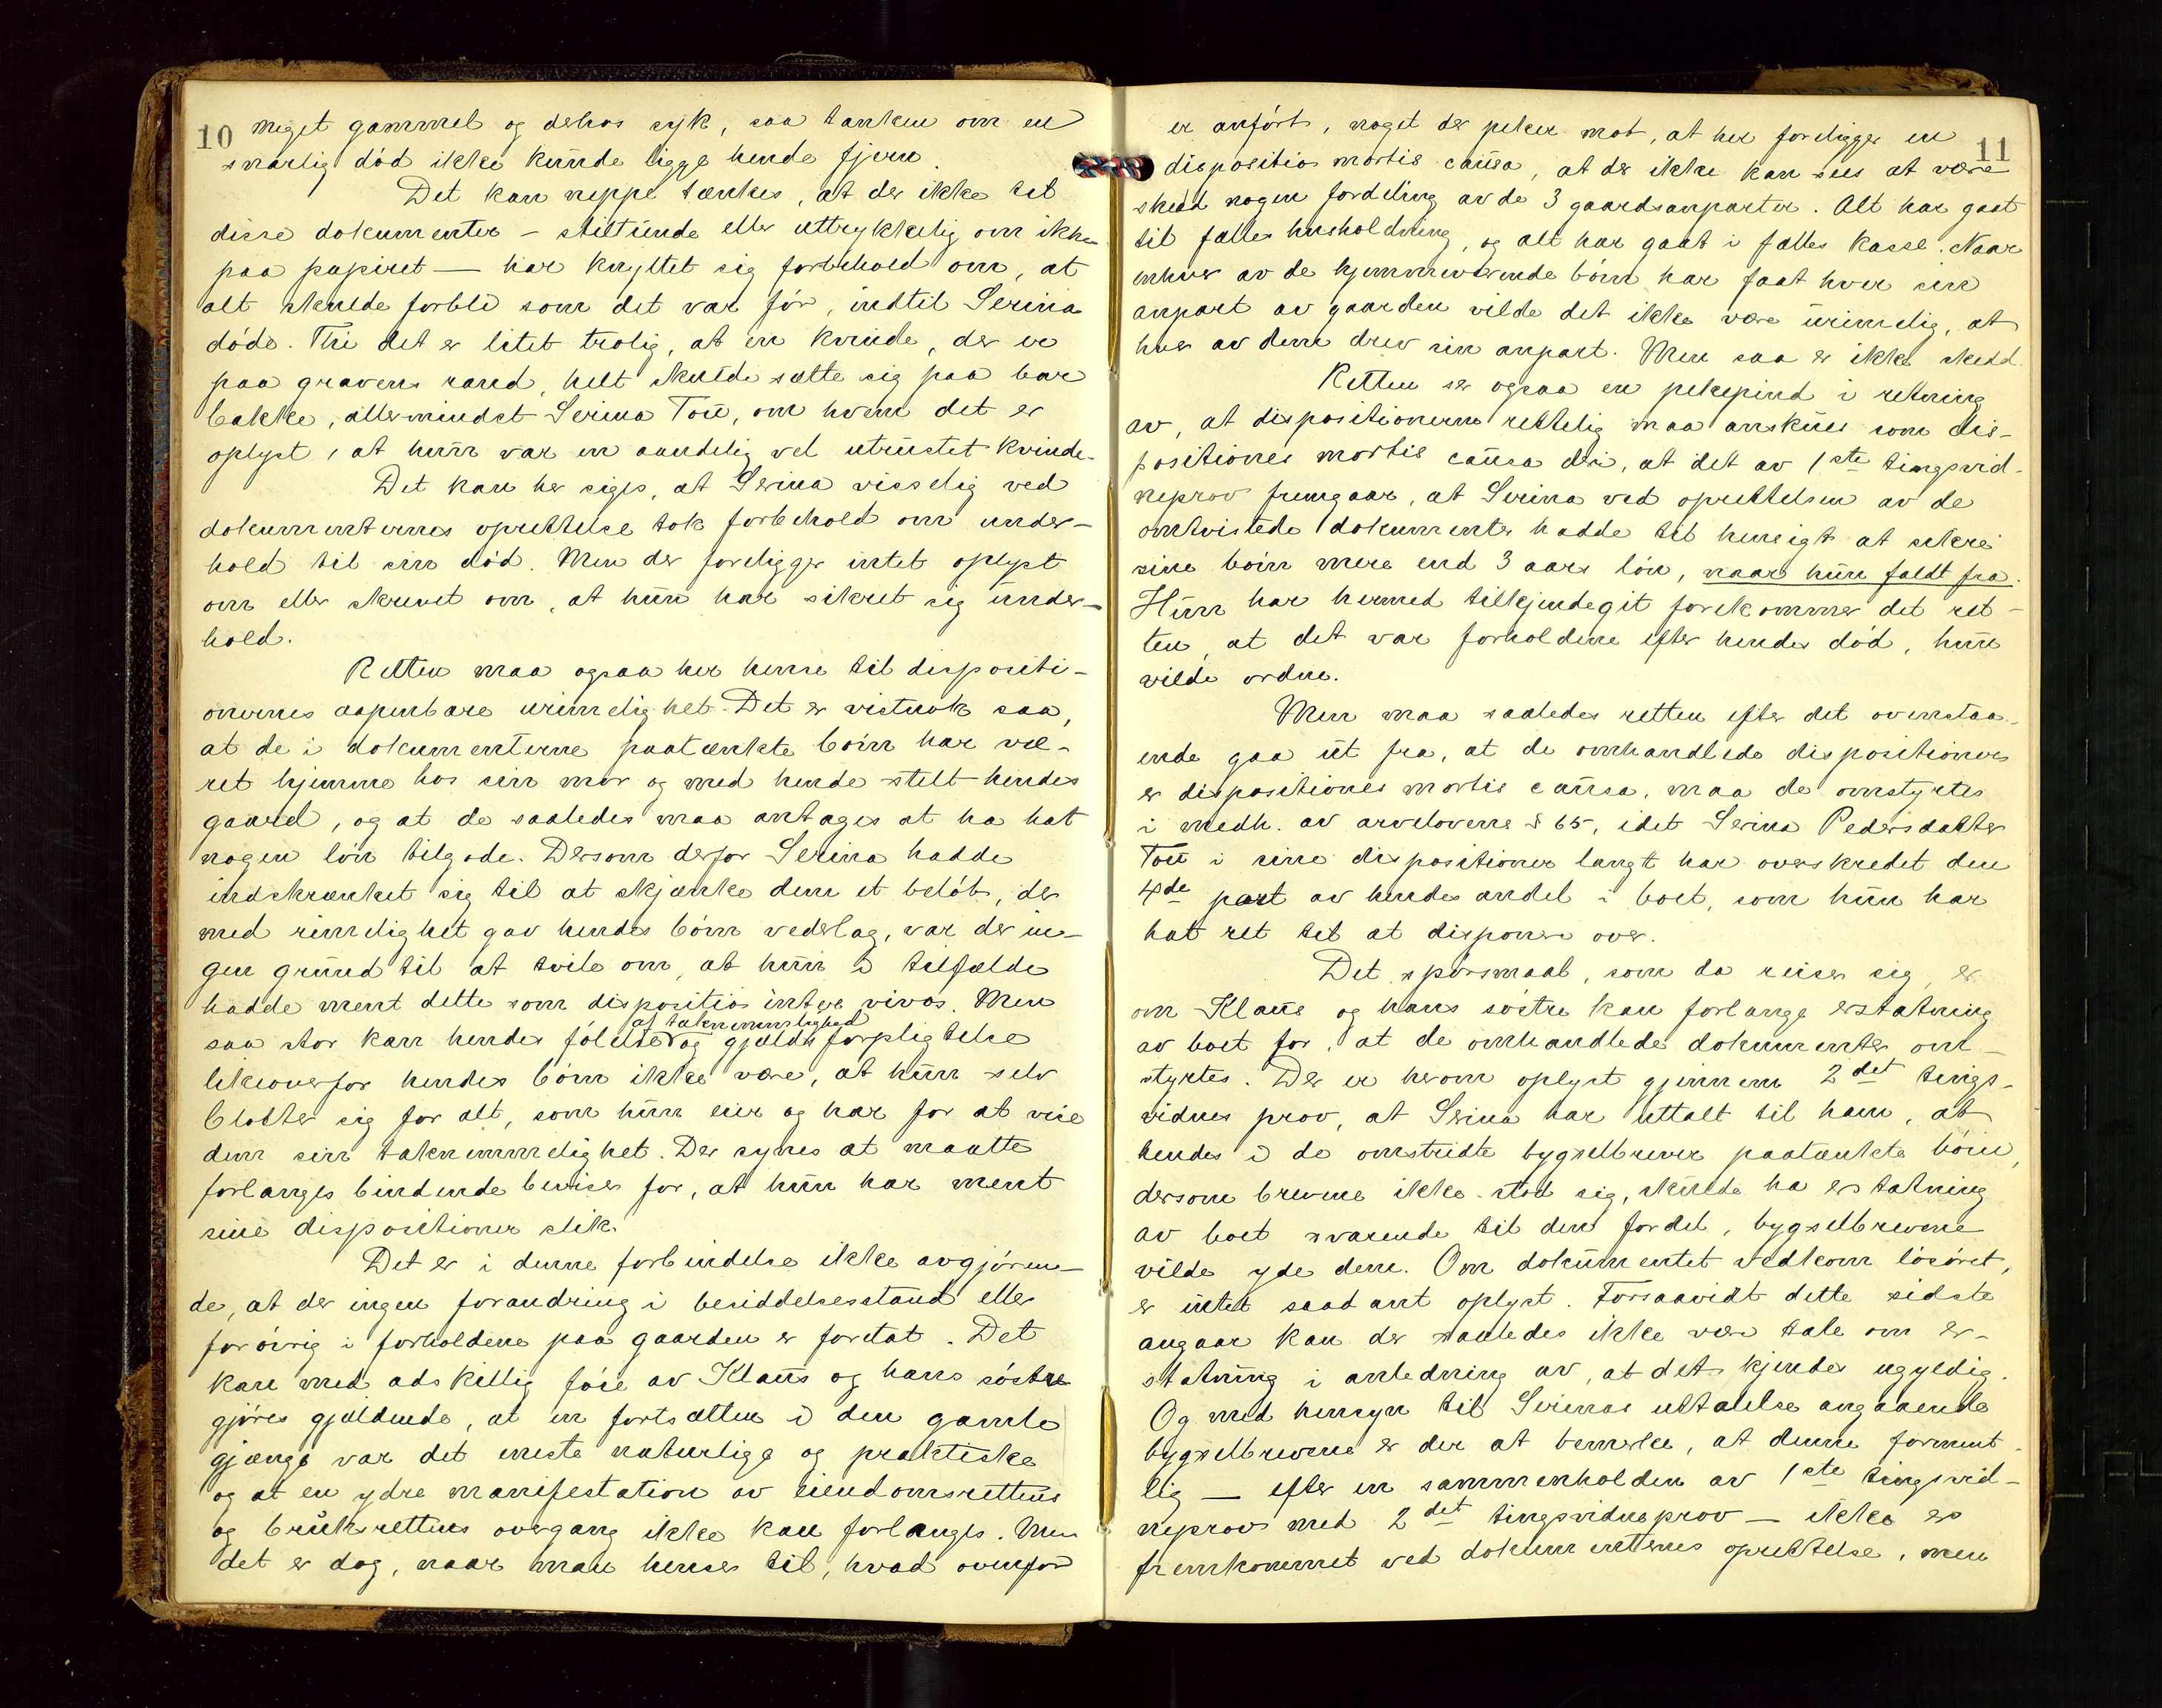 10
meget gammel og derhos syk, saa tanken om en
snarlig död ikke kunde ligge hende fjern.
Det kan neppe tænkes, at der ikke til
disse dokumenter - stiltiende eller uttrykkelig om ikke
paa papiret - har knyttet sig forbehold om, at
alt skulde forbli som det var för, indtil Serina
döde. Thi det er litet trolig, at en kvinde, der er
paa gravens rand, helt skulde sætte sig paa bar
bakke, allermindst Serina Tou, om hvem det er
oplyst, at hun var en aandelig vel utrustet kvinde.
Det kan her siges, at Serina visselig ved
dokumenternes oprettelse tok forbehold om under-
hold til sin död. Men der foreligger intet oplyst
om eller skrevet om, at hun har sikret sig under-
hold.
Retten maa ogsaa her hense til dispositi-
onernes aapenbare urimelighet. Det er vistnok saa,
at de i dokumenterne paatænkte börn har væ-
ret hjemme hos sin mor og med hende stelt hendes
gaard, og at de saaledes maa antages at ha hat
nogen lön tilgode. Dersom derfor Serina hadde
indskrænket sig til at skjænke dem et belöb, der
med rimelighet gav hendes börn vederlag, var der in-
gen grund til at tvile om, at hun i tilfælde
hadde ment dette som dispositio inter vivos. Men
saa stor kan hendes fölelse af taknemmelighed og gjælds forpligtelse
likeoverfor hendes börn ikke være, at hun selv
blotter sig for alt, som hun eier og har for at vise
dem sin taknemmelighet. Der synes at maatte
forlanges bindende beviser for, at hun har ment
sine dispositioner slik.
Det er i denne forbindelse ikke avgjören-
de, at der ingen forandring i besiddelsesstand eller
forövrig i forholdene paa gaarden er foretat. Det
kan med adskillig föie av Klaus og hans söstre
gjöres gjældende, at en fortsætten i den gamle
gjænge var det mest naturlige og praktiske
og at en ydre manifestation av eiendomsrettens
og bruksrettens overgang ikke kan forlanges. Men
det er dog, naar man henser til, hvad ovenfor
11
er anfört, noget der peker mot, at her foreligger en
dispositio mortis causa, at der ikke kan sees at være
skedd nogen fordeling av de 3 gaardsanparter. Alt har gaat
til fælles husholdning, og alt har gaat i fælles kasse. Naar
enhver av de hjemmeværende börn har faat hver sin
anpart av gaarden vilde det ikke være urimelig, at
hver av dem drev sin anpart. Men saa er ikke skedd.
Retten ser ogsaa en pekepind i retning
av, at dispositionerne rettelig maa anskues som dis-
positiones mortis causa deri, at det av 1ste tingsvid-
neprov fremgaar, at Serina ved oprettelsen av de
omtvistede dokumenter hadde til hensigt at sikre
sine börn mere end 3 aars lön, naar hun faldt fra.
Hun har hermed tilkjendegit forekommer det ret-
ten, at det var forholdene efter hendes död, hun
vilde ordne.
Men maa saaledes retten efter det ovenstaa-
ende gaa ut fra, at de omhandlede dispositioner
er dispositiones mortis causa, maa de omstyrtes
i medh. av arvelovens § 65, idet Serina Pedersdatter
Tou i sine dispositioner langt har overskredet den
4de part av hendes andel i boet, som hun har
hat ret til at disponere over.
Det spörsmaal, som da reiser sig, er
om Klaus og hans söstre kan forlange erstatning
av boet for, at de omhandlede dokumenter om-
styrtes. Der er herom oplyst gjennem 2det tings-
vidnes prov, at Serina har uttalt til ham, at
hendes i de omstridte bygselbrever paatænkte börn,
dersom brevene ikke stod sig, skulde ha erstatning
av boet svarende til den fordel, bygselbrevene
vilde yde dem. Om dokumentet vedkom lösöret,
er intet saadant oplyst. Forsaavidt dette sidste
angaar kan der saaledes ikke være tale om er-
statning i anledning av, at det kjendes ugyldig.
Og med hensyn til Serinas uttalelse angaaende
bygselbrevene er der at bemerke, at denne forment-
lig - efter en sammenholden av 1ste tingsvid-
neprov med 2det tingsvidneprov - ikke er
fremkommet ved dokumenternes oprettelse, men